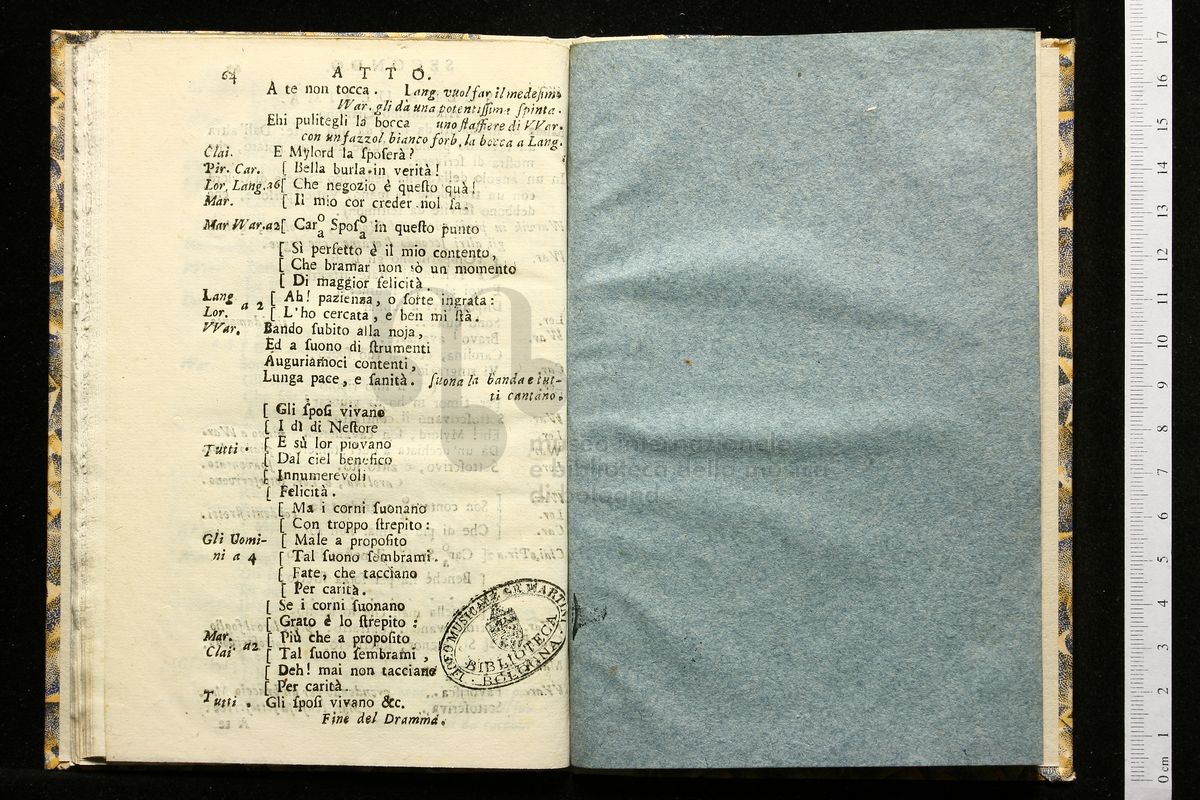 64 ATTO.
A te non tocca. Lang. vuol far il medesimo
War. gli dà una potentissima spinta.
Ehi pulitegli la bocca uno staffiere di VVar.
con un fazzol. bianco forb. la bocca a Lang.
Clai. E Mylord la sposerà?
Pir. Car. [ Bella burla in verità!
Lor. Lang. a6 [ Che negozio è questo quà!
Mar. [ Il mio cor creder nol sa.
Mar War. a2 [ Caro/a Sposo/a in questo punto
[ Sì perfetto è il mio contento,
[ Che bramar non sò un momento
[ Di maggior felicità.
Lang a 2 [ Ah! pazienza, o sorte ingrata:
Lor. [ L'ho cercata, e ben mi stà.
VVar. Bando subito alla noja,
Ed a suono di strumenti
Auguriamoci contenti,
Lunga pace, e sanità. suona la banda e tut-
ti cantano.
[ Gli sposi vivano
[ I dì di Nestore
Tutti. [ E sù lor piovano
[ Dal ciel benefico
[ Innumerevoli
[ Felicità.
[ Ma i corni suonano
[ Con troppo strepito:
Gli Uomi- [ Male a proposito
ni a 4 [ Tal suono sembrami.
[ Fate, che tacciano
[ Per carità.
[ Se i corni suonano
[ Grato è lo strepito:
Mar. a2 [ Più che a proposito
Clai [ Tal suono sembrami,
[ Deh! mai non tacciano
[ Per carità.
Tutti. Gli sposi vivano &c.
Fine del Dramma.
BIBLIOTECA
BOLOGNA
museo internazionale
e biblioteca della
di bologna
0 cm 1 2 3 4 5 6 7 8 9 10 11 12 13 14 15 16 17